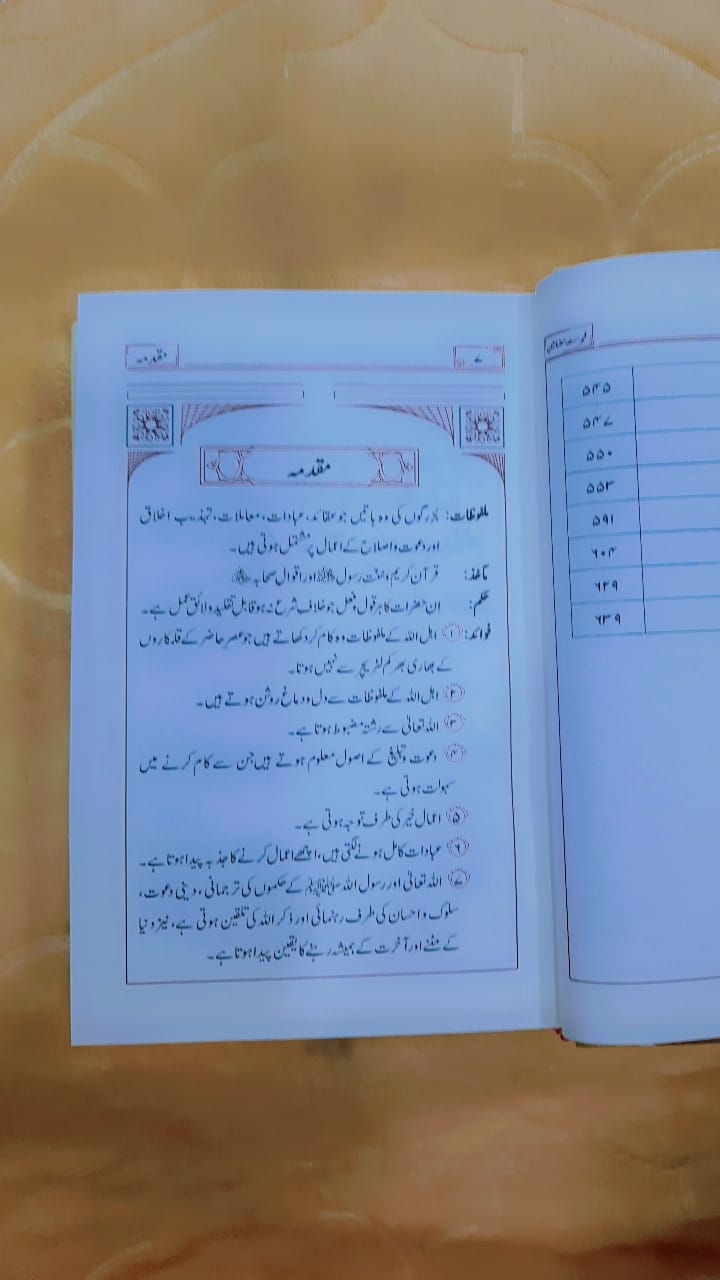 مقدمہ
۷
مقدمہ
ملفوظات: بزرگوں کی وہ باتیں جو عقائد، عبادات، معاملات، تہذیب اخلاق
اور دعوت و اصلاح کے اعمال پر مشتمل ہوتی ہیں۔
مآخذ: قرآن کریم و سنت رسول ﷺ اور اقوال صحابہ رضی اللہ عنہم
حکم: ان حضرات کا ہر قول و فعل جو خلاف شرع نہ ہو قابل تقلید و لائق عمل ہے۔
فوائد: ① اہل اللہ کے ملفوظات وہ کام کر دکھاتے ہیں جو عصر حاضر کے قلمکاروں
کے بھاری بھرکم لٹریچر سے نہیں ہوتا۔
② اہل اللہ کے ملفوظات سے دل و دماغ روشن ہوتے ہیں۔
③ اللہ تعالیٰ سے رشتہ مضبوط ہوتا ہے۔
④ دعوت و تبلیغ کے اصول معلوم ہوتے ہیں جن سے کام کرنے میں
سہولت ہوتی ہے۔
⑤ اعمال خیر کی طرف توجہ ہوتی ہے۔
⑥ عبادات کامل ہونے لگتی ہیں، اچھے اعمال کرنے کا جذبہ پیدا ہوتا ہے۔
⑦ اللہ تعالیٰ اور رسول اللہ ﷺ کے حکموں کی ترجمانی، دینی دعوت،
سلوک و احسان کی طرف رہنمائی اور ذکر اللہ کی تلقین ہوتی ہے، نیز دنیا
کے مٹنے اور آخرت کے ہمیشہ رہنے کا یقین پیدا ہوتا ہے۔
فہرست مضامین
۵۴۵
۵۴۷
۵۵۰
۵۵۳
۵۹۱
۶۰۴
۶۲۹
۶۳۹